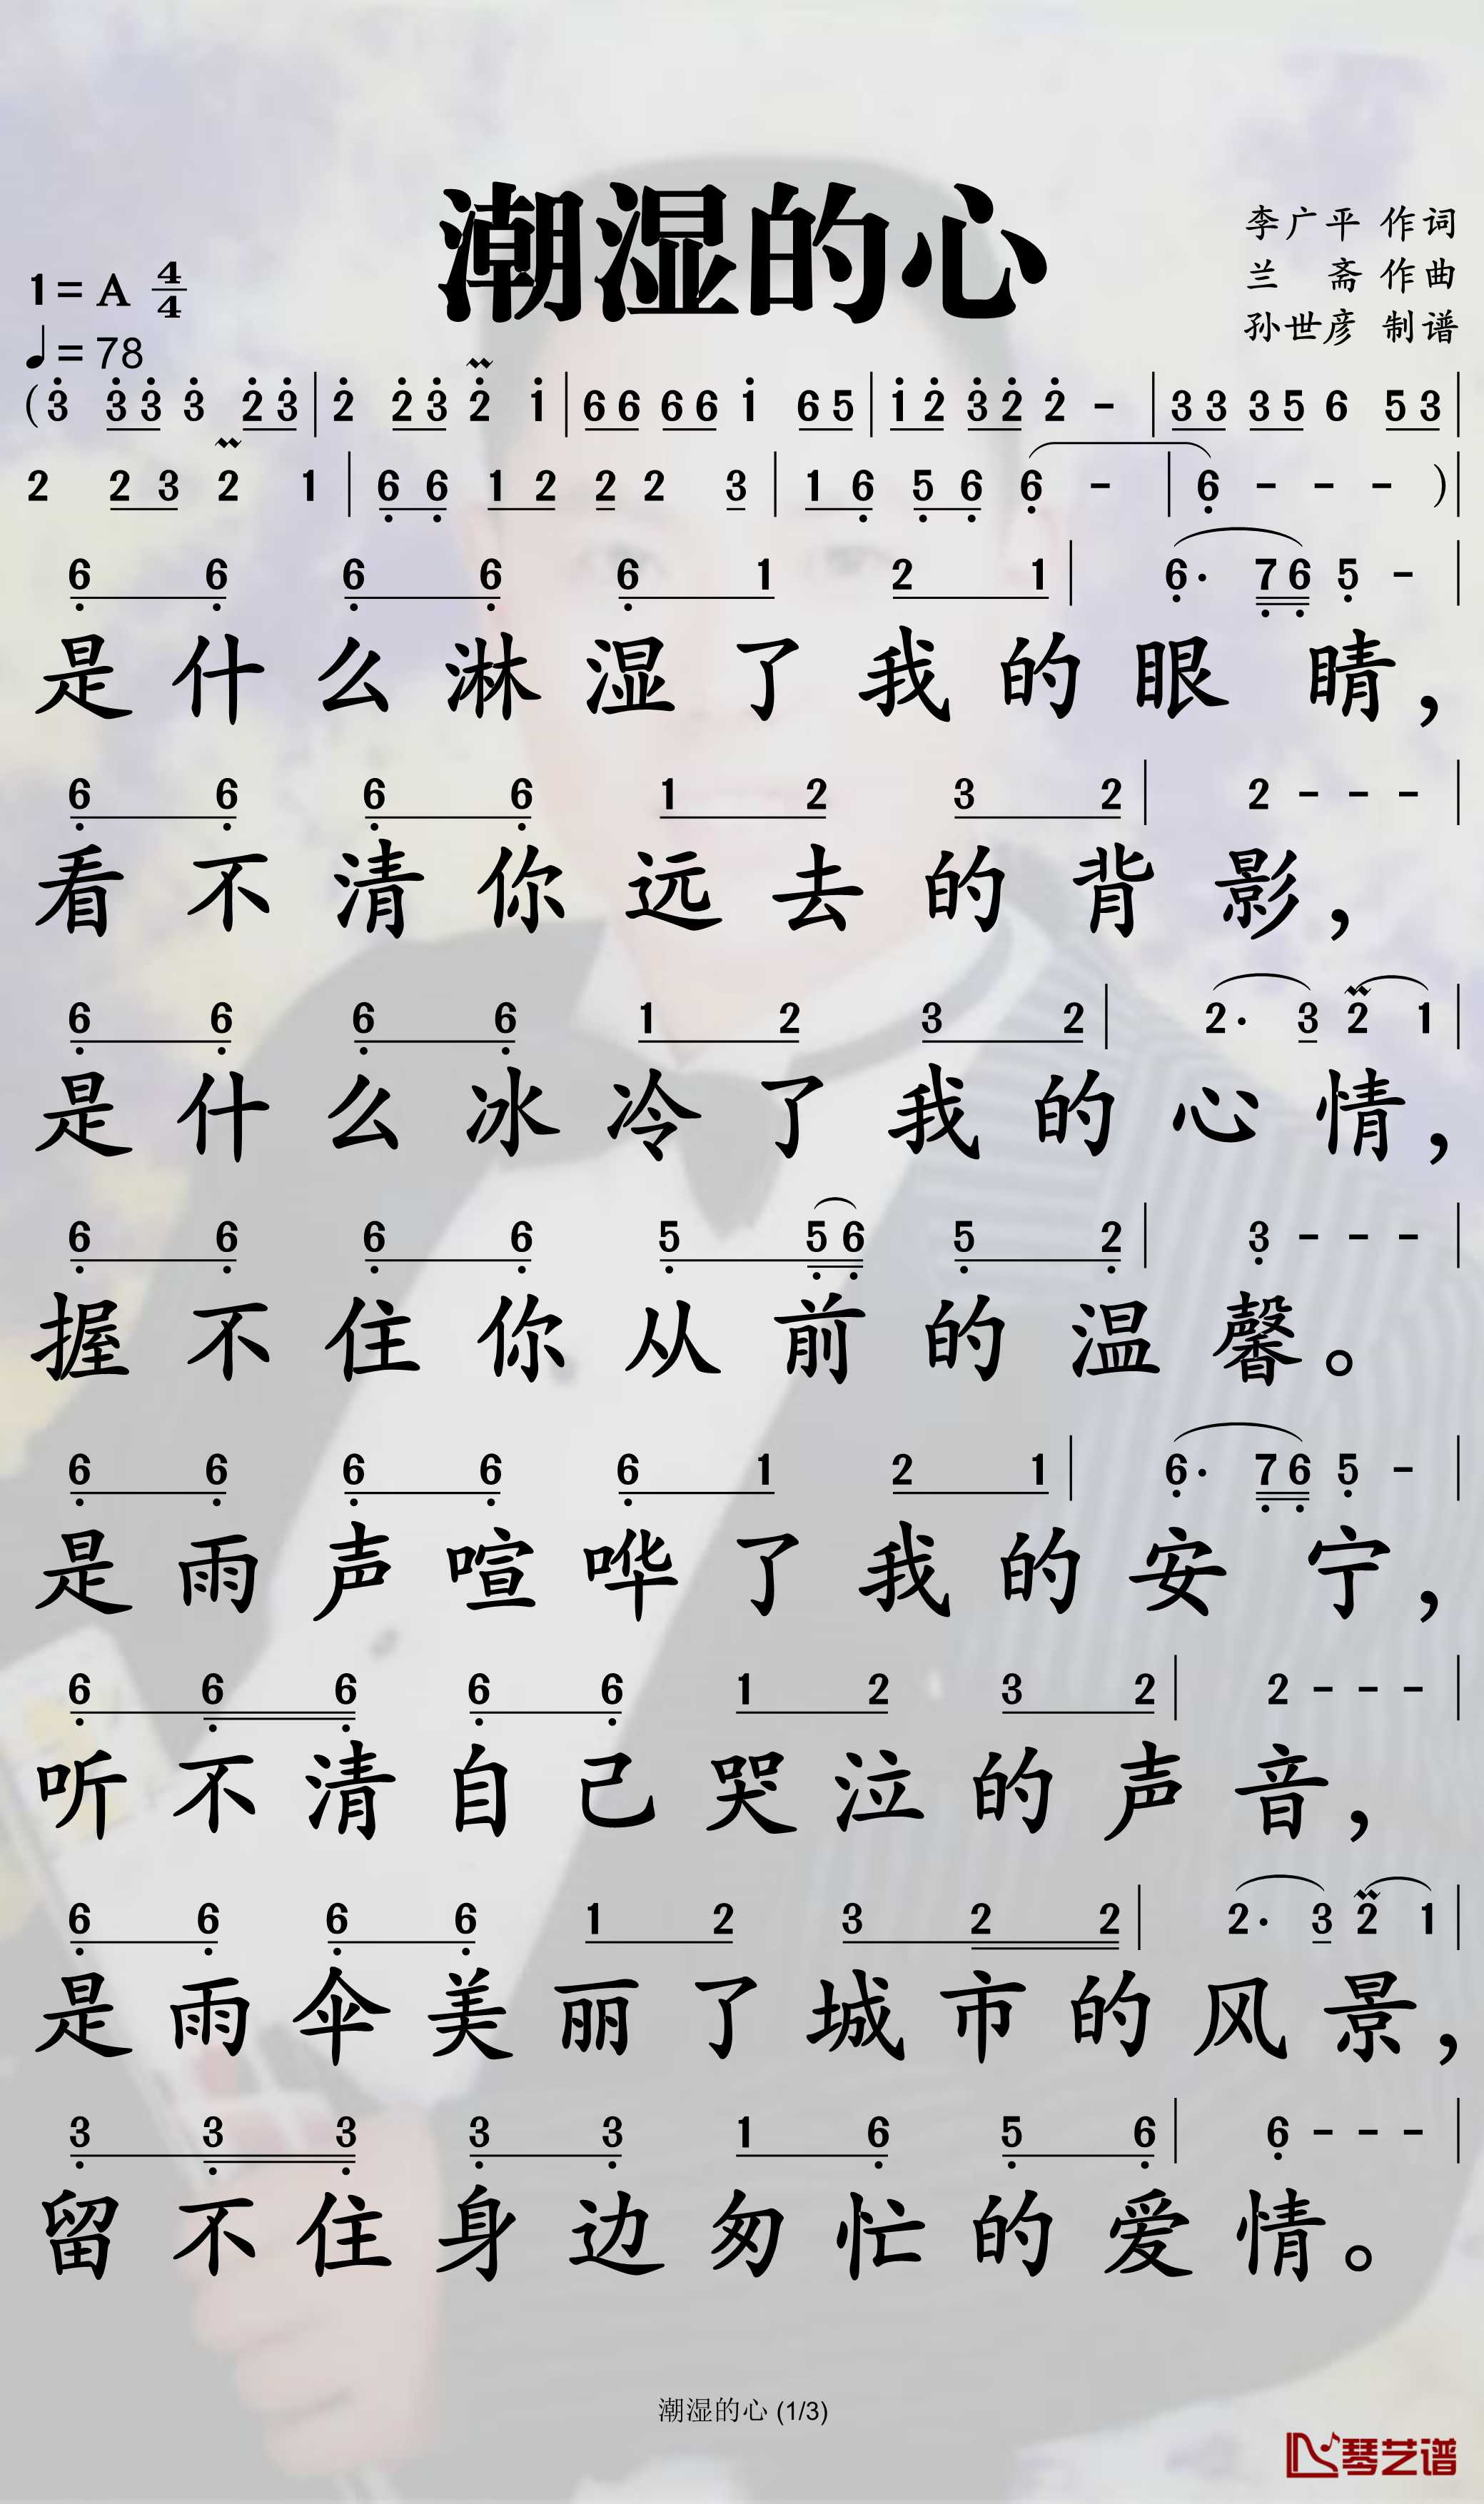 潮湿的心
李广平 作词
兰 斋 作曲
孙世彦 制谱
1=A 4/4
♩=78
(3 3 3 3 2 3 | 2 2 3 2 1 | 6 6 6 6 1 6 5 | 1 2 3 2 2 - | 3 3 3 5 6 5 3 |
2 2 3 2 1 | 6 6 1 2 2 2 3 | 1 6 5 6 6 - | 6 - - - )|
6 6 6 6 6 1 2 1 | 6· 7 6 5 - |
是什么淋湿了我的眼睛，
6 6 6 6 1 2 3 2 | 2 - - - |
看不清你远去的背影，
6 6 6 6 1 2 3 2 | 2· 3 2 1 |
是什么冰冷了我的心情，
6 6 6 6 5 5 6 5 2 | 3 - - - |
握不住你从前的温馨。
6 6 6 6 6 1 2 1 | 6· 7 6 5 - |
是雨声喧哗了我的安宁，
6 6 6 6 6 1 2 3 2 | 2 - - - |
听不清自己哭泣的声音，
6 6 6 6 1 2 3 2 2 | 2· 3 2 1 |
是雨伞美丽了城市的风景，
3 3 3 3 3 1 6 5 6 | 6 - - - |
留不住身边匆忙的爱情。
潮湿的心 (1/3)
琴艺谱